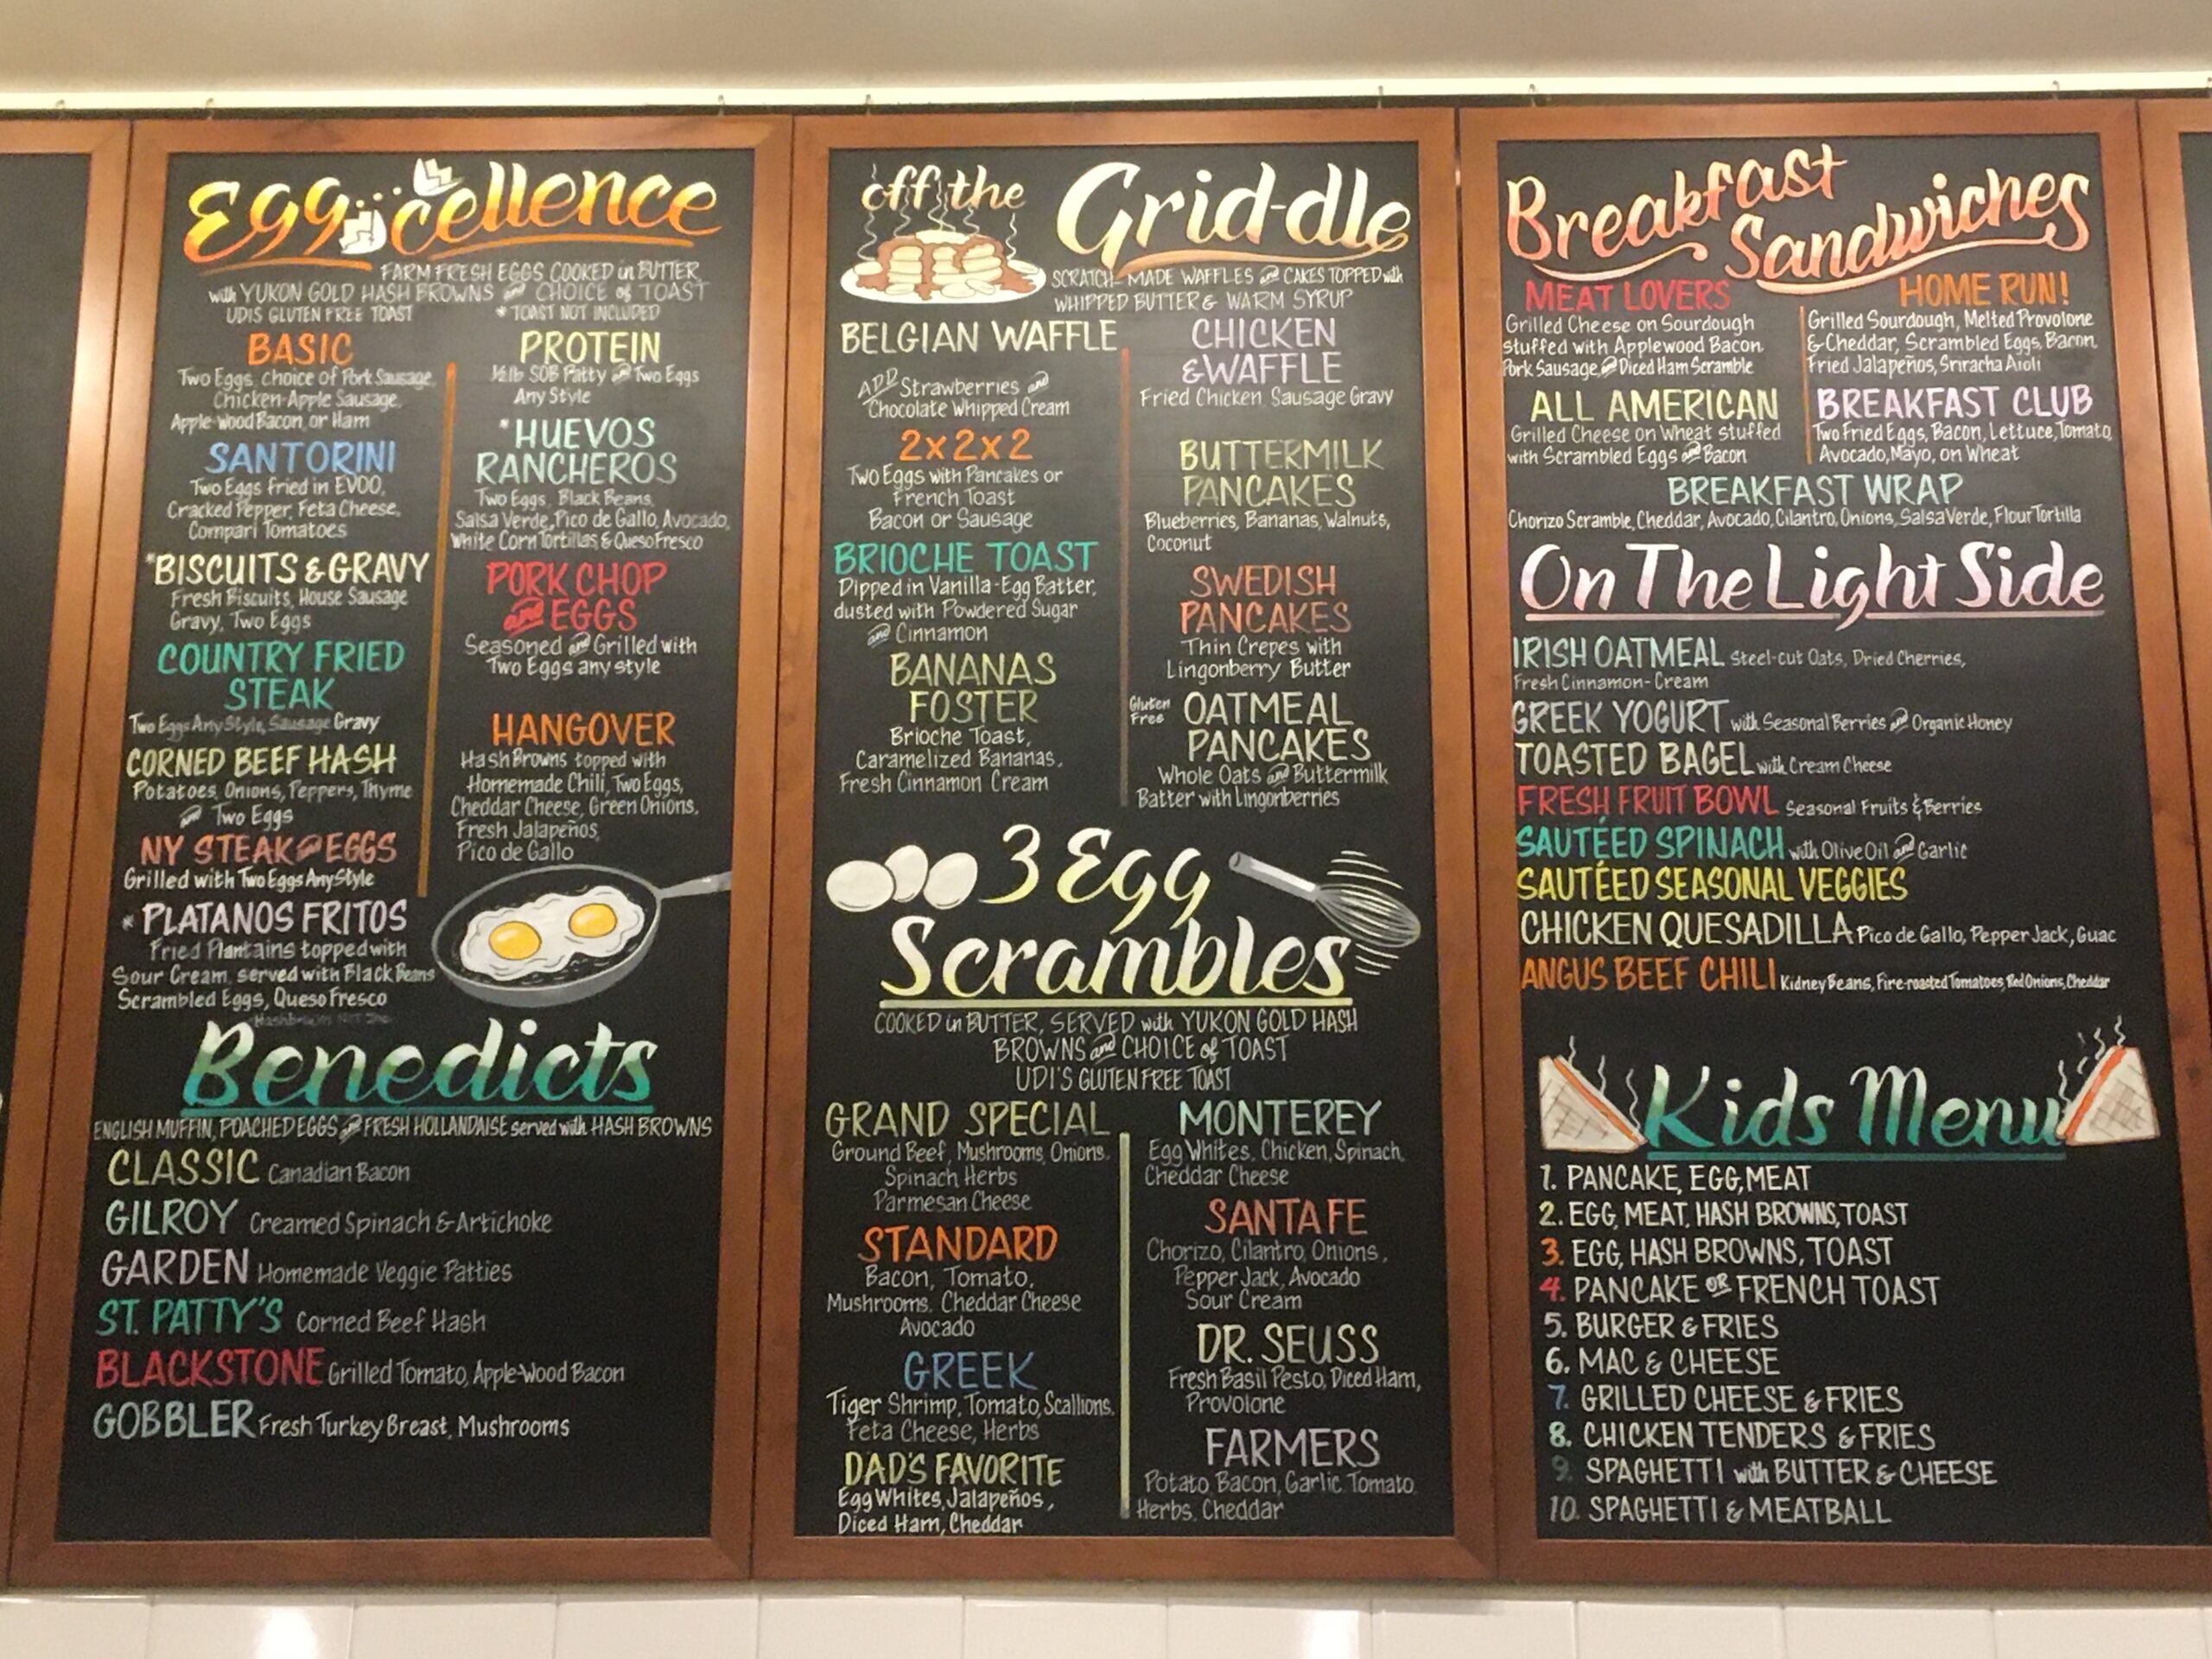 Egg...cellence
FARM FRESH EGGS COOKED in BUTTER
with YUKON GOLD HASH BROWNS and CHOICE of TOAST
UDIS GLUTEN FREE TOAST
* TOAST NOT INCLUDED
BASIC
Two Eggs, choice of Pork Sausage,
Chicken-Apple Sausage,
Apple-Wood Bacon, or Ham
SANTORINI
Two Eggs fried in EVOO,
Cracked Pepper, Feta Cheese,
Compari Tomatoes
*BISCUITS & GRAVY
Fresh Biscuits, House Sausage
Gravy, Two Eggs
COUNTRY FRIED
STEAK
Two Eggs Any Style, Sausage Gravy
CORNED BEEF HASH
Potatoes, Onions, Peppers, Thyme
and Two Eggs
NY STEAK and EGGS
Grilled with Two Eggs Any Style
* PLATANOS FRITOS
Fried Plantains topped with
Sour Cream, served with Black Beans
Scrambled Eggs, Queso Fresco
PROTEIN
½ lb SOB Patty and Two Eggs
Any Style
*HUEVOS
RANCHEROS
Two Eggs, Black Beans,
Salsa Verde, Pico de Gallo, Avocado,
White Corn Tortillas & Queso Fresco
PORK CHOP
and EGGS
Seasoned and Grilled with
Two Eggs any style
HANGOVER
Hash Browns topped with
Homemade Chili, Two Eggs,
Cheddar Cheese, Green Onions,
Fresh Jalapeños,
Pico de Gallo
Benedicts
ENGLISH MUFFIN, POACHED EGGS and FRESH HOLLANDAISE served with HASH BROWNS
CLASSIC Canadian Bacon
GILROY Creamed Spinach & Artichoke
GARDEN Homemade Veggie Patties
ST. PATTY'S Corned Beef Hash
BLACKSTONE Grilled Tomato, Apple-Wood Bacon
GOBBLER Fresh Turkey Breast, Mushrooms
off the Grid-dle
SCRATCH-MADE WAFFLES and CAKES TOPPED with
WHIPPED BUTTER & WARM SYRUP
BELGIAN WAFFLE
ADD Strawberries and
Chocolate Whipped Cream
2x2x2
Two Eggs with Pancakes or
French Toast
Bacon or Sausage
BRIOCHE TOAST
Dipped in Vanilla-Egg Batter,
dusted with Powdered Sugar
and Cinnamon
BANANAS
FOSTER
Brioche Toast,
Caramelized Bananas,
Fresh Cinnamon Cream
CHICKEN
& WAFFLE
Fried Chicken, Sausage Gravy
BUTTERMILK
PANCAKES
Blueberries, Bananas, Walnuts,
Coconut
SWEDISH
PANCAKES
Thin Crepes with
Lingonberry Butter
Gluten
Free
OATMEAL
PANCAKES
Whole Oats and Buttermilk
Batter with Lingonberries
3 Egg
Scrambles
COOKED in BUTTER, SERVED with YUKON GOLD HASH
BROWNS and CHOICE of TOAST
UDI'S GLUTEN FREE TOAST
GRAND SPECIAL
Ground Beef, Mushrooms, Onions,
Spinach Herbs
Parmesan Cheese
STANDARD
Bacon, Tomato,
Mushrooms, Cheddar Cheese
Avocado
GREEK
Tiger Shrimp, Tomato, Scallions,
Feta Cheese, Herbs
DAD'S FAVORITE
Egg Whites, Jalapeños,
Diced Ham, Cheddar
MONTEREY
Egg Whites, Chicken, Spinach,
Cheddar Cheese
SANTA FE
Chorizo, Cilantro, Onions,
Pepper Jack, Avocado
Sour Cream
DR. SEUSS
Fresh Basil Pesto, Diced Ham,
Provolone
FARMERS
Potato, Bacon, Garlic, Tomato,
Herbs, Cheddar
Breakfast
Sandwiches
MEAT LOVERS
Grilled Cheese on Sourdough
stuffed with Applewood Bacon,
Pork Sausage, and Diced Ham Scramble
ALL AMERICAN
Grilled Cheese on Wheat stuffed
with Scrambled Eggs and Bacon
HOME RUN!
Grilled Sourdough, Melted Provolone
& Cheddar, Scrambled Eggs, Bacon,
Fried Jalapeños, Sriracha Aioli
BREAKFAST CLUB
Two Fried Eggs, Bacon, Lettuce, Tomato,
Avocado, Mayo, on Wheat
BREAKFAST WRAP
Chorizo Scramble, Cheddar, Avocado, Cilantro, Onions, Salsa Verde, Flour Tortilla
On The Light Side
IRISH OATMEAL Steel-cut Oats, Dried Cherries,
Fresh Cinnamon-Cream
GREEK YOGURT with Seasonal Berries and Organic Honey
TOASTED BAGEL with Cream Cheese
FRESH FRUIT BOWL Seasonal Fruits & Berries
SAUTÉED SPINACH with Olive Oil and Garlic
SAUTÉED SEASONAL VEGGIES
CHICKEN QUESADILLA Pico de Gallo, Pepper Jack, Guac
ANGUS BEEF CHILI Kidney Beans, Fire-roasted Tomatoes, Red Onions, Cheddar
Kids Menu
1. PANCAKE, EGG, MEAT
2. EGG, MEAT, HASH BROWNS, TOAST
3. EGG, HASH BROWNS, TOAST
4. PANCAKE OR FRENCH TOAST
5. BURGER & FRIES
6. MAC & CHEESE
7. GRILLED CHEESE & FRIES
8. CHICKEN TENDERS & FRIES
9. SPAGHETTI with BUTTER & CHEESE
10. SPAGHETTI & MEATBALL